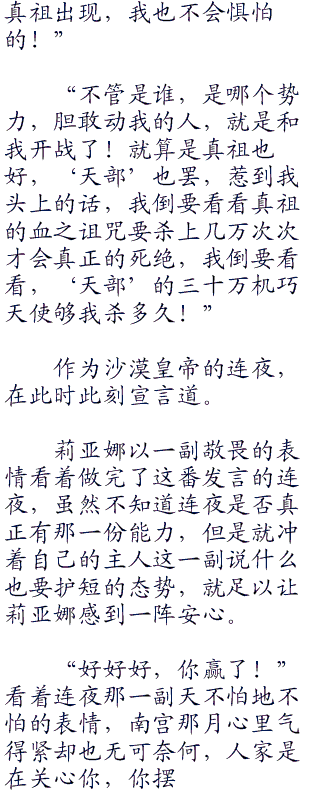 真祖出现，我也不会惧怕
的！”
“不管是谁，是哪个势
力，胆敢动我的人，就是和
我开战了！就算是真祖也
好，‘天部’也罢，惹到我
头上的话，我倒要看看真祖
的血之诅咒要杀上几万次次
才会真正的死绝，我倒要看
看，‘天部’的三十万机巧
天使够我杀多久！”
作为沙漠皇帝的连夜，
在此时此刻宣言道。
莉亚娜以一副敬畏的表
情看着做完了这番发言的连
夜，虽然不知道连夜是否真
正有那一份能力，但是就冲
着自己的主人这一副说什么
也要护短的态势，就足以让
莉亚娜感到一阵安心。
“好好好，你赢了！”
看着连夜那一副天不怕地不
怕的表情，南宫那月心里气
得紧却也无可奈何，人家是
在关心你，你摆